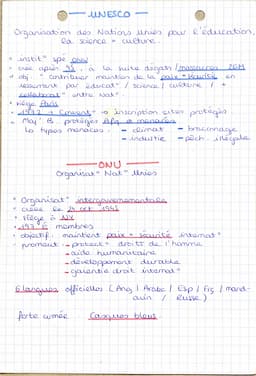 UNESCO
Organisation des Nations Unies pour l'éducation,
la science + culture.
• instit° spé ONU
• créé après
à la suite dégâts / massacres 2GM
• obj. : contribuer maintien de la paix + sécurité en
resserrant par éducat° / science / culture / +
collaborat° entre nat°.
• siège Paris
• 1972 + Convent° → inscription sites protégés
protégés Afq et menacés
types menaces : - climat - braconnage
- industrie - pêch. illégale
ONU
Organisat° Nat° Unies
• Organisat° intergouvernementale
• créée le 24 oct 1945
• siège à NY
• 193 É membres
• objectif : maintient paix + sécurité internat°
• promeut : - protect° droits de l'homme
- aide humanitaire
- développement durable
- garantie droit internat°
6 langues officielles (Ang / Arabe / Esp / Frç / mand-
arin / Russe)
forte armée Casques bleus